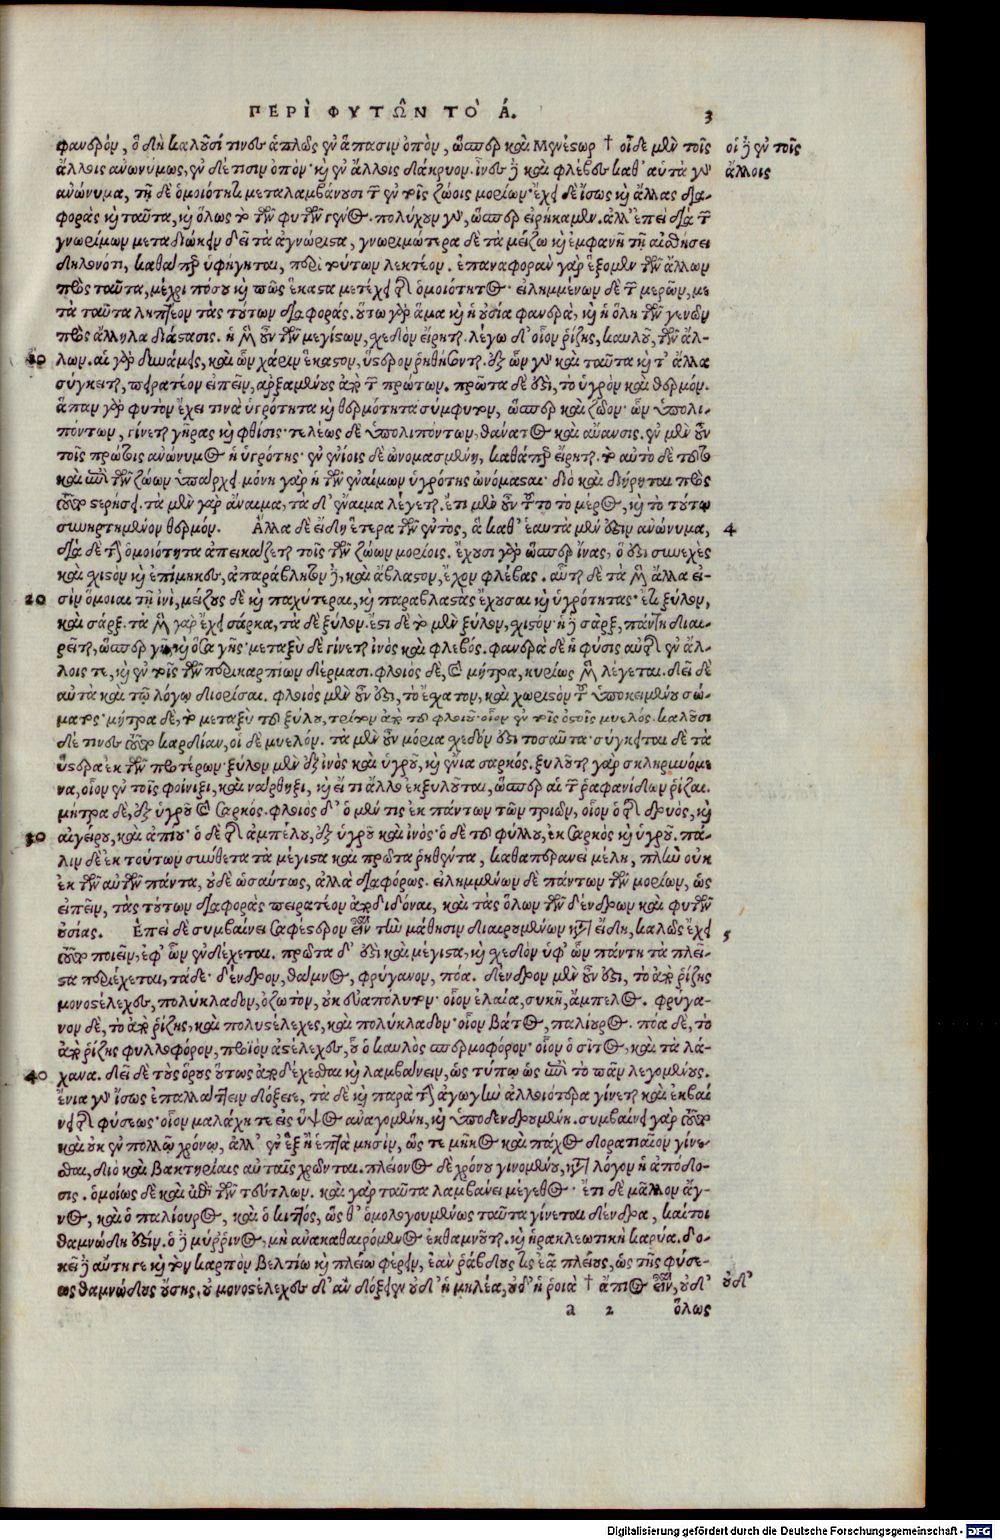 ΠΕΡῚ ΦΥΤΩ͂Ν ΤῸ Α΄. 3
φανερόν, ὃ δὴ καλοῦσί τινες ἁπλῶς ἐν ἅπασιν ὀπόν, ὥσπερ καὶ Μενέστωρ † οἵδε μὲν τοῖς οἱ δὲ ἐν τοῖς
ἄλλοις ἀνωνύμως, ἐν δέ τισιν ὀπόν· καὶ ἐν ἄλλοις δάκρυον. ἶνες δὲ καὶ φλέβες καθ' αὑτὰ μὲν ἄλλοις
ἀνώνυμα, τῇ δὲ ὁμοιότητι μεταλαμβάνουσι τῶν ἐν τοῖς ζώοις μορίων· ἔχει δὲ ἴσως καὶ ἄλλας δια-
φορὰς καὶ ταῦτα, καὶ ὅλως τὸ τῶν φυτῶν γένος. πολύχουν γὰρ, ὥσπερ εἰρήκαμεν. ἀλλ' ἐπεὶ διὰ τῶν
γνωρίμων μεταδιώκειν δεῖ τὰ ἀγνώριστα, γνωριμώτερα δὲ τὰ μείζω καὶ ἐμφανῆ τῇ αἰσθήσει
δηλονότι, καθάπερ ὑφήγηται, περὶ τούτων λεκτέον. ἐπαναφορὰν γὰρ ἕξομεν τῶν ἄλλων
πρὸς ταῦτα, μέχρι πόσου καὶ πῶς ἕκαστα μετέχει τῆς ὁμοιότητος. εἰλημμένων δὲ τῶν μερῶν, με
τὰ ταῦτα ληπτέον τὰς τούτων διαφοράς. οὕτω γὰρ ἅμα καὶ ἡ οὐσία φανερὰ, καὶ ἡ ὅλη τῶν γενῶν
πρὸς ἄλληλα διάστασις. ἡ μὲν οὖν τῶν μεγίστων, σχεδὸν εἴρηται. λέγω δ' οἷον ῥίζης, καυλοῦ, τῶν ἄλ-
10 λων. αἱ γὰρ δυνάμεις, καὶ ὧν χάριν ἕκαστον, ὕστερον ῥηθήσονται. ἐξ ὧν γὰρ καὶ ταῦτα καὶ τὰ ἄλλα
σύγκειται, πειρατέον εἰπεῖν, ἀρξαμένους ἀπὸ τῶν πρώτων. πρῶτα δέ ἐστι, τὸ ὑγρὸν καὶ θερμόν.
ἅπαν γὰρ φυτὸν ἔχει τινὰ ὑγρότητα καὶ θερμότητα σύμφυτον, ὥσπερ καὶ ζῶον· ὧν ὑπολι-
πόντων, γίνεται γῆρας καὶ φθίσις· τελέως δὲ ὑπολιπόντων, θάνατος καὶ αὔανσις. ἐν μὲν οὖν
τοῖς πρώτοις ἀνώνυμος ἡ ὑγρότης· ἐν ἐνίοις δὲ ὠνομασμένη, καθάπερ εἴρηται. τὸ αὐτὸ δὲ τοῦτο
καὶ ἐπὶ τῶν ζώων ὑπάρχει. μόνη γὰρ ἡ τῶν ἐναίμων ὑγρότης ὠνόμασται· διὸ καὶ διῄρηται πρὸς
τοῦτο στερήσει. τὰ μὲν γὰρ ἄναιμα, τὰ δ' ἔναιμα λέγεται. ἔτι μὲν οὖν τοῦτο τὸ μέρος, καὶ τὸ τούτῳ
συνηρτημένον θερμόν. Ἄλλα δὲ εἴδη ἕτερα τῶν ἐντὸς, ἃ καθ' ἑαυτὰ μὲν ἐστιν ἀνώνυμα, 4
διὰ δὲ τὴν ὁμοιότητα ἀπεικάζεται τοῖς τῶν ζώων μορίοις. ἔχουσι γὰρ ὥσπερ ἶνας, ὅ ἐστι συνεχὲς
καὶ σχιστὸν καὶ ἐπίμηκες, ἀπαράβλητον δὲ, καὶ ἄβλαστον, ἔχον φλέβας. αὗται δὲ τὰ μὲν ἄλλα εἰ-
20 σὶν ὅμοιαι τῇ ἰνὶ, μείζους δὲ καὶ παχύτεραι, καὶ παραβλαστὰς ἔχουσαι καὶ ὑγρότητας· ἔτι ξύλον,
καὶ σάρξ. τὰ μὲν γὰρ ἔχει σάρκα, τὰ δὲ ξύλον. ἔστι δὲ τὸ μὲν ξύλον, σχιστόν· ἡ δὲ σὰρξ, πάντη διαι-
ρεῖται, ὥσπερ γῆ, καὶ ὅσα γῆς· μεταξὺ δὲ γίνεται ἰνὸς καὶ φλεβός. φανερὰ δὲ ἡ φύσις αὐτῆς ἐν ἄλ-
λοις τε, καὶ ἐν τοῖς τῶν περικαρπίων δέρμασι. φλοιὸς δὲ, καὶ μήτρα, κυρίως μὲν λέγεται. δεῖ δὲ
αὐτὰ καὶ τῷ λόγῳ διορίσαι. φλοιὸς μὲν οὖν ἐστι, τὸ ἔσχατον, καὶ χωριστὸν τοῦ ὑποκειμένου σώ-
ματος· μήτρα δὲ, τὸ μεταξὺ τοῦ ξύλου, τρίτον ἀπὸ τοῦ φλοιοῦ· οἷον ἐν τοῖς ὀστοῖς μυελός. καλοῦσι
δέ τινες τοῦτο καρδίαν, οἱ δὲ μυελόν. τὰ μὲν οὖν μόρια σχεδόν ἐστι τοσαῦτα· σύγκειται δὲ τὰ
ὕστερα ἐκ τῶν προτέρων· ξύλον μὲν ἐξ ἰνὸς καὶ ὑγροῦ, καὶ ἔνια σαρκός. ξυλοῦται γὰρ σκληρυνόμε
να, οἷον ἐν τοῖς φοίνιξι, καὶ νάρθηξι, καὶ εἴ τι ἄλλο ἐκξυλοῦται, ὥσπερ αἱ τῶν ῥαφανίδων ῥίζαι.
μήτρα δὲ, ἐξ ὑγροῦ καὶ σαρκός. φλοιὸς δ' ὁ μέν τις ἐκ πάντων τῶν τριῶν, οἷον ὁ τῆς δρυὸς, καὶ
30 αἰγείρου, καὶ ἀπίου· ὁ δὲ τῆς ἀμπέλου, ἐξ ὑγροῦ καὶ ἰνός· ὁ δὲ τοῦ φύλλου, ἐκ σαρκὸς καὶ ὑγροῦ. πά-
λιν δὲ ἐκ τούτων σύνθετα τὰ μέγιστα καὶ πρῶτα ῥηθέντα, καθαπερανεὶ μέλη, πλὴν οὐκ
ἐκ τῶν αὐτῶν πάντα, οὐδὲ ὡσαύτως, ἀλλὰ διαφόρως. εἰλημμένων δὲ πάντων τῶν μορίων, ὡς
εἰπεῖν, τὰς τούτων διαφορὰς πειρατέον ἀποδιδόναι, καὶ τὰς ὅλων τῶν δένδρων καὶ φυτῶν
οὐσίας. Ἐπεὶ δὲ συμβαίνει σαφέστερον εἶναι τὴν μάθησιν διαιρουμένων κατὰ εἴδη, καλῶς ἔχει 5
τοῦτο ποιεῖν, ἐφ' ὧν ἐνδέχεται. πρῶτα δ' ἐστὶ καὶ μέγιστα, καὶ σχεδὸν ὑφ' ὧν πάντη τὰ πλεῖ-
στα περιέχεται, τάδε· δένδρον, θάμνος, φρύγανον, πόα. δένδρον μὲν οὖν ἐστι, τὸ ἀπὸ ῥίζης
μονοστέλεχες, πολύκλαδον, ὀζωτὸν, οὐκ εὐαπόλυτον· οἷον ἐλαία, συκῆ, ἄμπελος. φρύγα-
νον δὲ, τὸ ἀπὸ ῥίζης, καὶ πολυστέλεχες, καὶ πολύκλαδον· οἷον βάτος, παλίουρος. πόα δὲ, τὸ
ἀπὸ ῥίζης φυλλοφόρον, προϊὸν ἀστέλεχες, οὗ ὁ καυλὸς σπερμοφόρον· οἷον ὁ σῖτος, καὶ τὰ λά-
40 χανα. δεῖ δὲ τοὺς ὅρους οὕτως ἀποδέχεσθαι καὶ λαμβάνειν, ὡς τύπῳ ὡς ἐπὶ τὸ πᾶν λεγομένους.
ἔνια γὰρ ἴσως ἐπαλλάττειν δόξειε, τὰ δὲ καὶ παρὰ τὴν ἀγωγὴν ἀλλοιότερα γίνεται καὶ ἐκβαί
νει τῆς φύσεως· οἷον μαλάχη τε εἰς ὕψος ἀναγομένη, καὶ ὑποδενδρουμένη. συμβαίνει γὰρ τοῦτο
καὶ οὐκ ἐν πολλῷ χρόνῳ, ἀλλ' ἐν ἓξ ἢ ἑπτὰ μησὶν, ὥς τε μῆκος καὶ πάχος δορατιαῖον γίνε-
σθαι, διὸ καὶ βακτηρίαις αὐταῖς χρῶνται. πλείονος δὲ χρόνου γινομένου, κατὰ λόγον ἡ ἀπόδο-
σις. ὁμοίως δὲ καὶ ἐπὶ τῶν τεύτλων. καὶ γὰρ ταῦτα λαμβάνει μέγεθος· ἔτι δὲ μᾶλλον ἄγ-
νος, καὶ ὁ παλίουρος, καὶ ὁ κιττὸς, ὥς θ' ὁμολογουμένως ταῦτα γίνεται δένδρα, καίτοι
θαμνώδη ἐστίν. ὁ δὲ μύρρινος, μὴ ἀνακαθαιρόμενος ἐκθαμνοῦται. καὶ ἡρακλεωτικὴ καρύα. δο-
κεῖ δὲ αὕτη γε καὶ τὸν καρπὸν βελτίω καὶ πλείω φέρειν, ἐὰν ῥάβδους τις ἐᾷ πλείους, ὡς τῆς φύσε-
ως θαμνώδους οὔσης. οὐ μονοστέλεχες δ' ἂν δόξειεν οὐδ' ἡ μηλέα, οὐδ' ἡ ῥοιὰ † ἄπιος εἶναι, οὐδ' οὐδ'
a 2 ὅλως
Digitalisierung gefördert durch die Deutsche Forschungsgemeinschaft - DFG